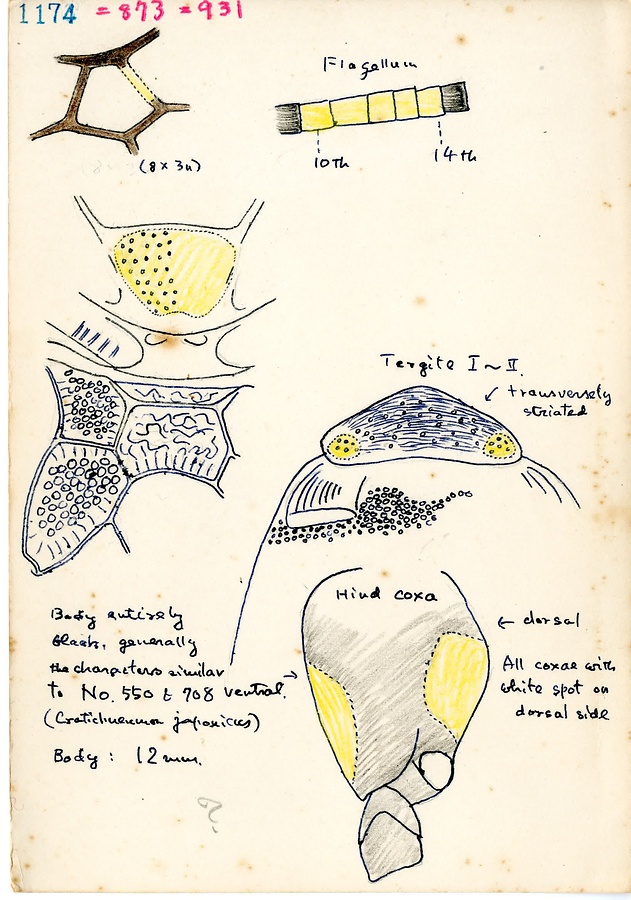 1174 = 873 = 931
Flagellum
(8 × 3u)
10th
14th
Tergite I ~ II.
transversely
striated
Hind coxa
← dorsal
All coxae with
white spot on
dorsal side
Body entirely
black, generally
the characters similar
to No. 550 & 708 ventral.
(Cratichneumon japonicus)
Body : 12 mm.
?